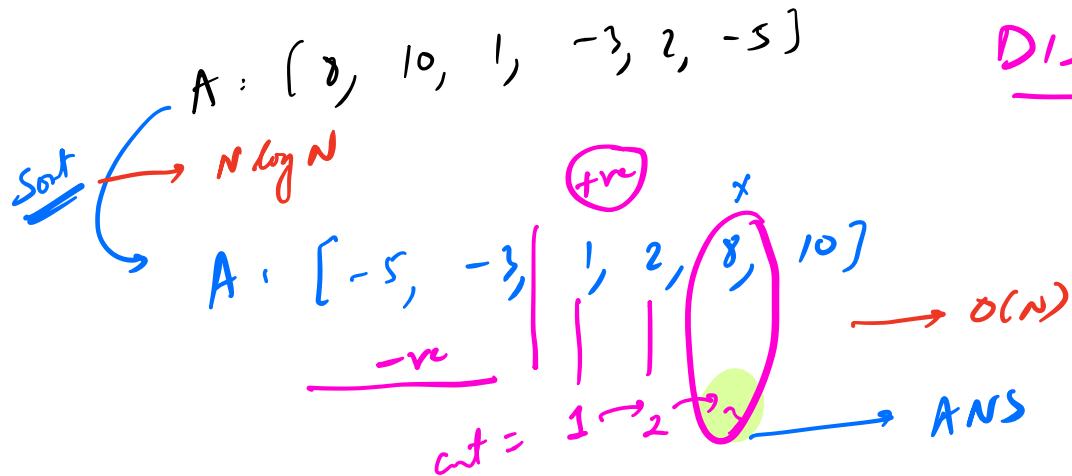 A : [8, 10, 1, -3, 2, -5]
Sort → N log N
+ve
x
A : [-5, -3, 1, 2, 8, 10]
→ O(N)
-ve
cnt = 1 → 2 →
→ ANS